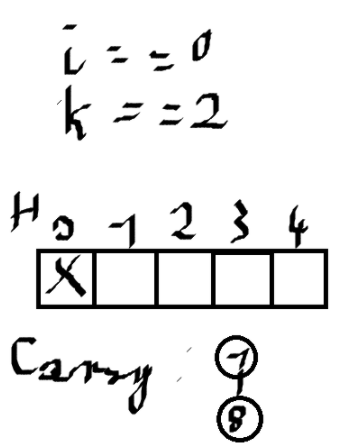 i == 0
k == 2
H 0 1 2 3 4
X
Carry : 1
8